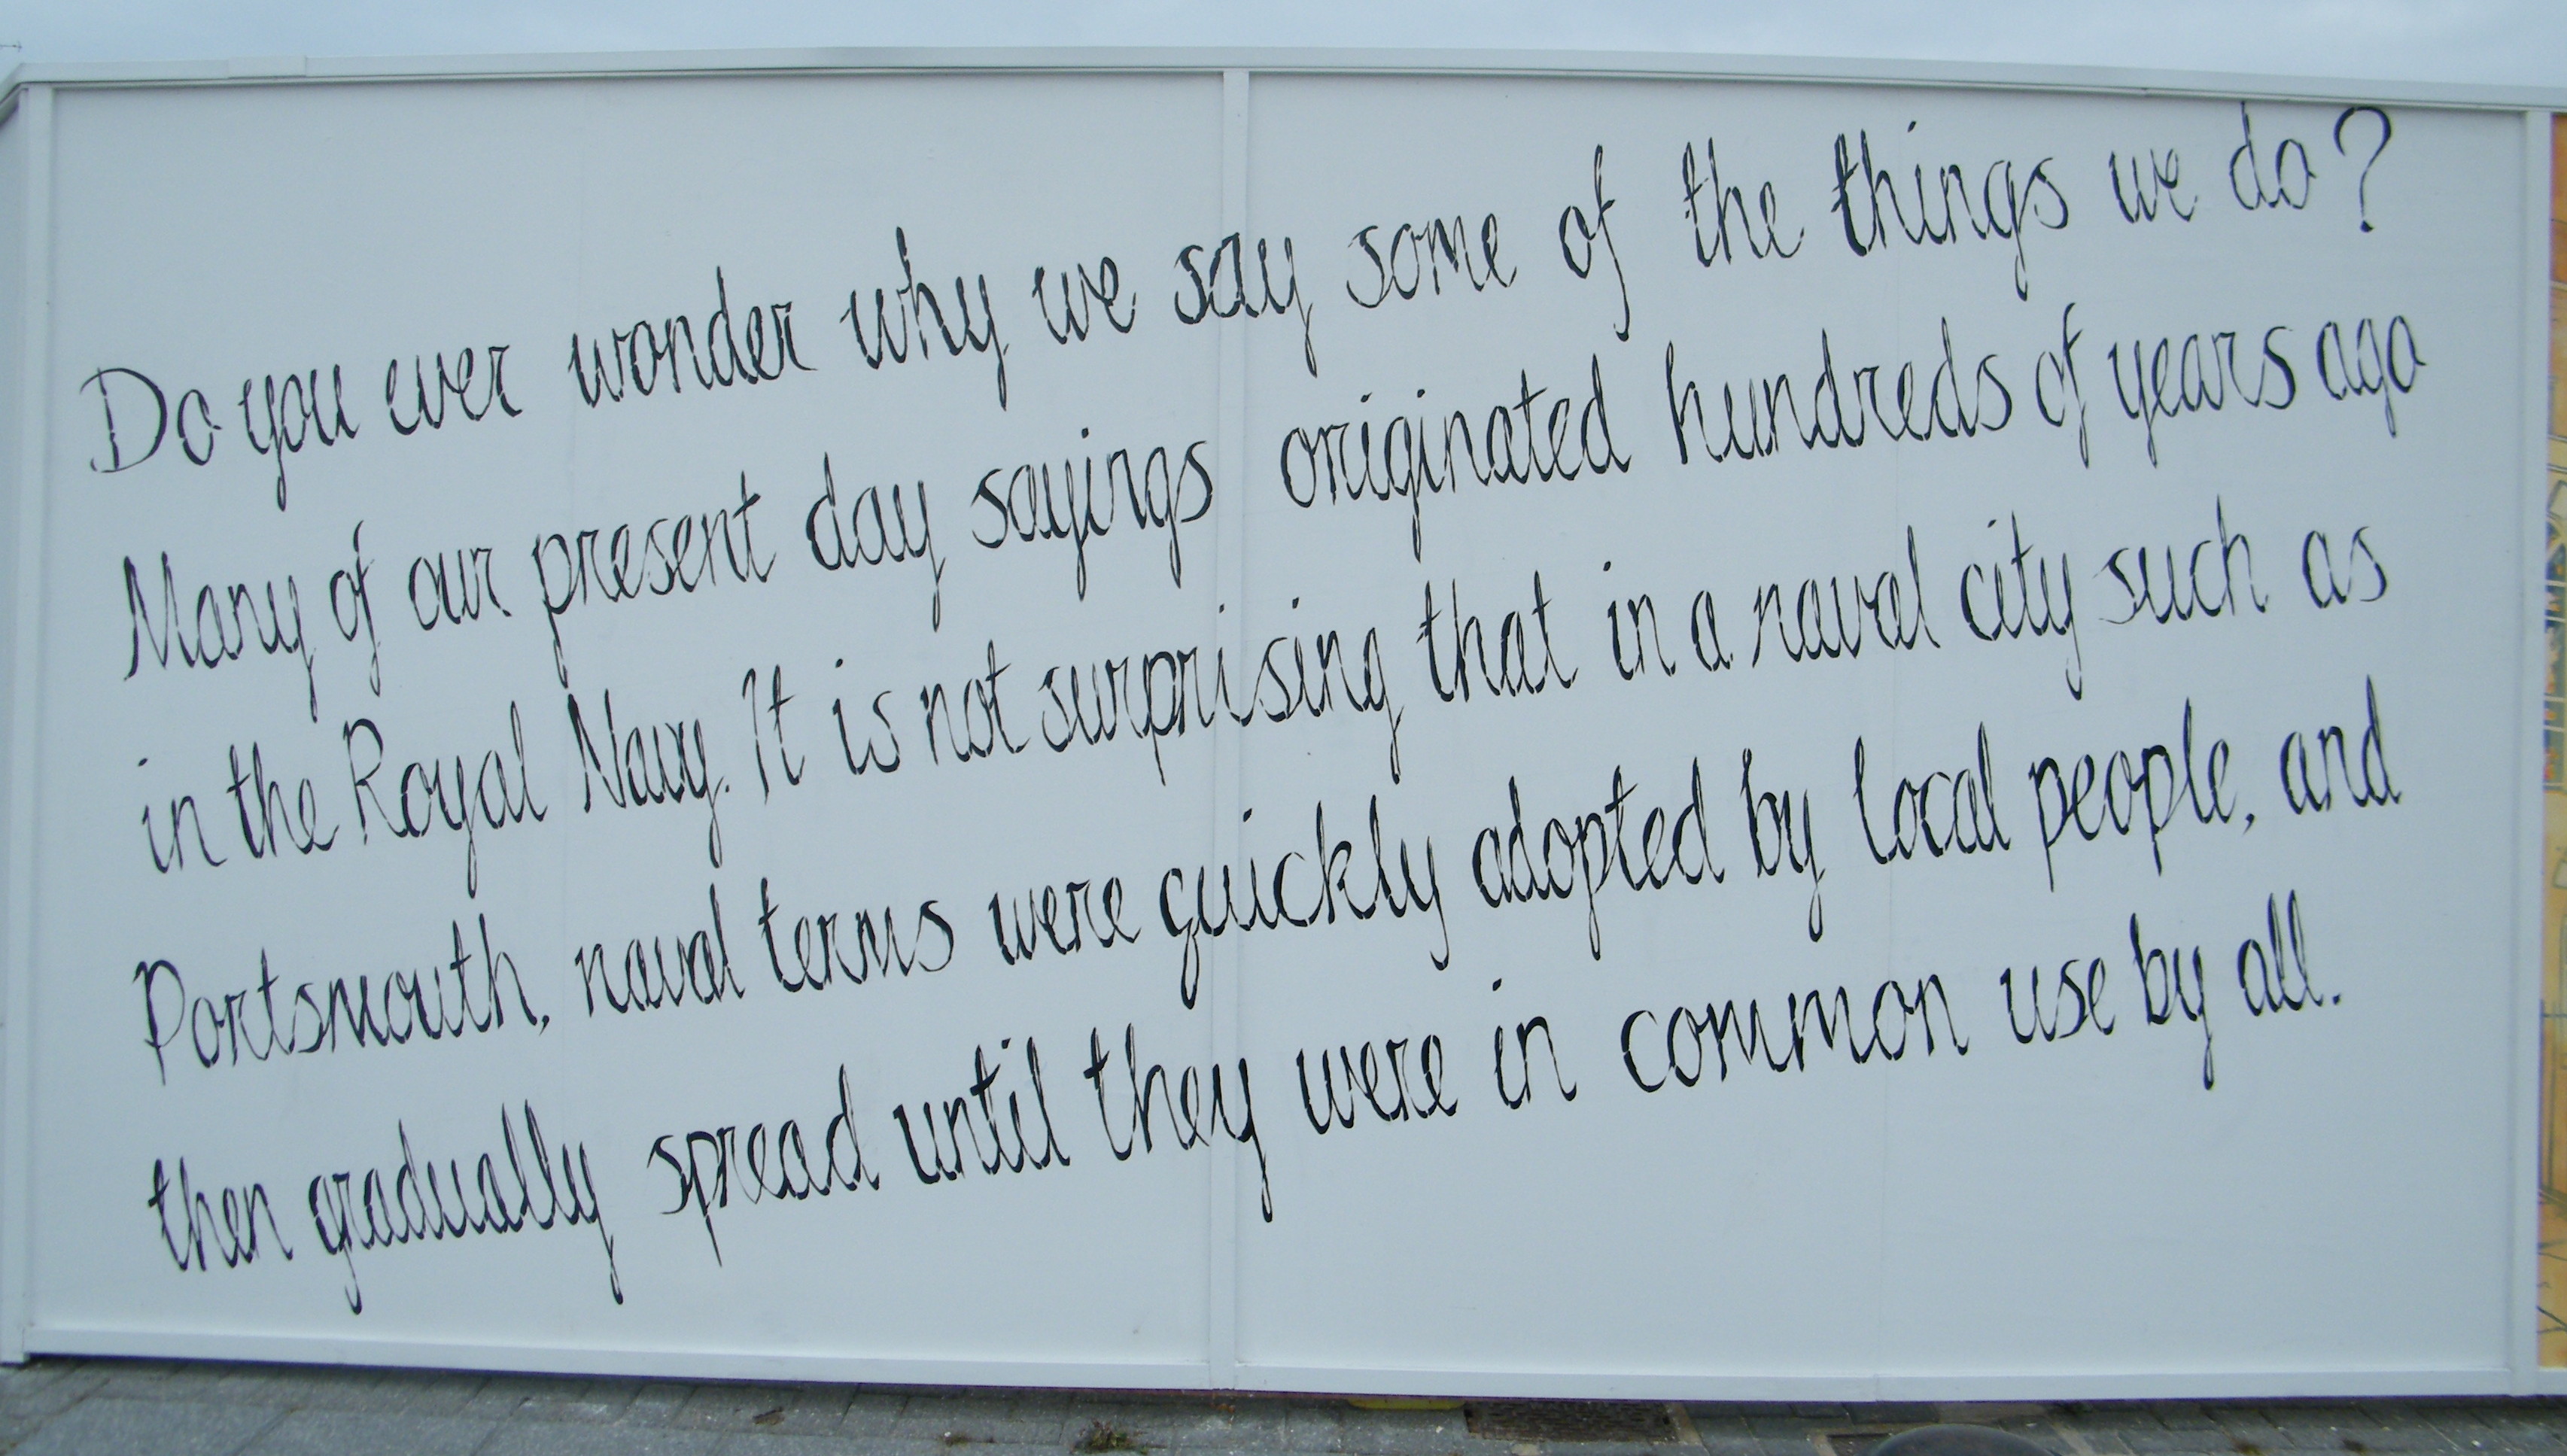 Do you ever wonder why we say some of the things we do?
Many of our present day sayings originated hundreds of years ago
in the Royal Navy. It is not surprising that in a naval city such as
Portsmouth, naval terms were quickly adopted by local people, and
then gradually spread until they were in common use by all.